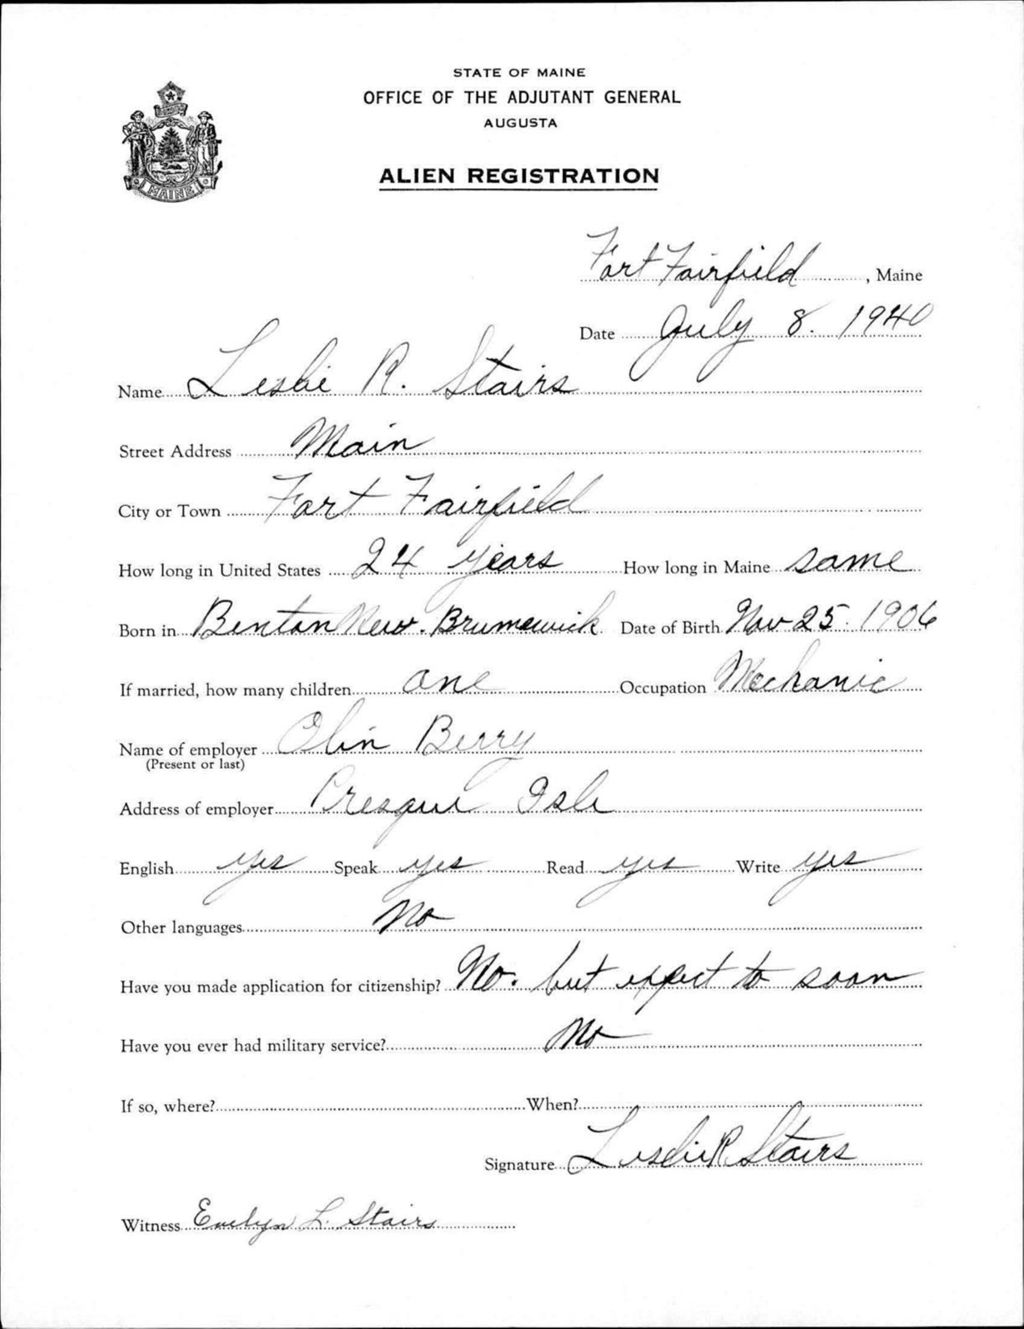 STATE OF MAINE
OFFICE OF THE ADJUTANT GENERAL
AUGUSTA
ALIEN REGISTRATION
MAINE
Fort Fairfield, Maine
Date July 8. 1940
Name Leslie R. Stairs
Street Address Main
City or Town Fort Fairfield
How long in United States 24 years How long in Maine same
Born in Benton New. Brunswick Date of Birth Nov 25. 1906
If married, how many children one Occupation Mechanic
Name of employer Olin Berry
(Present or last)
Address of employer Presque Isle
English yes Speak yes Read yes Write yes
Other languages No
Have you made application for citizenship? No. but expect to soon
Have you ever had military service? No
If so, where? When?
Signature Leslie R Stairs
Witness Evelyn L. Stairs